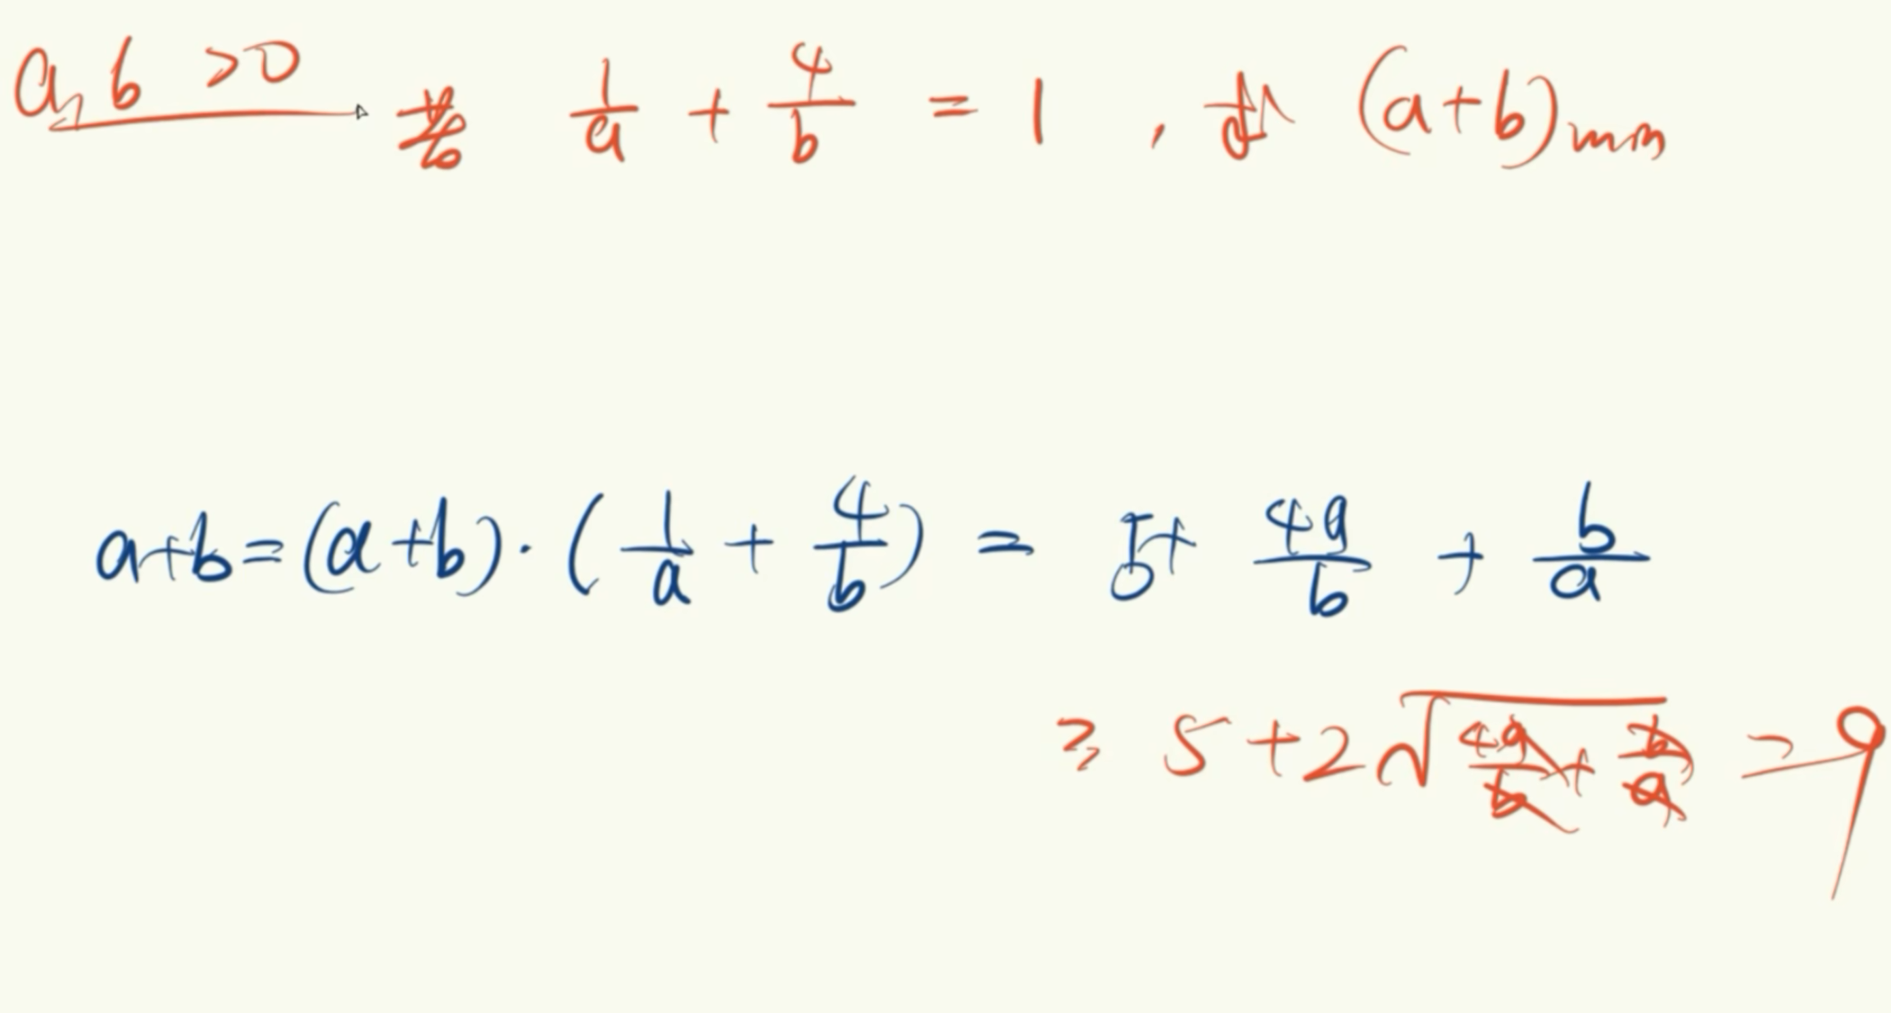 a, b >0 若 1/a + 4/b = 1 , 求 (a+b)min
a+b=(a+b)·(1/a + 4/b) = 5+ 4a/b + b/a
≥ 5+2√(4a/b + b/a) = 9